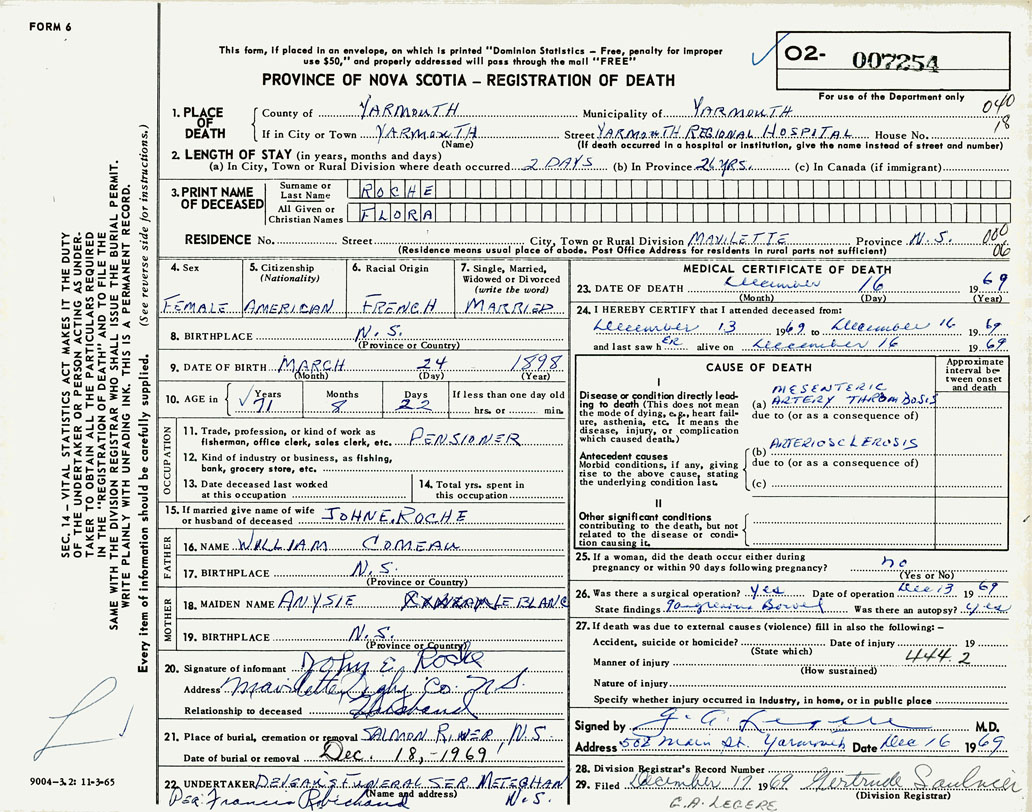 FORM 6
This form, if placed in an envelope, on which is printed "Dominion Statistics – Free, penalty for improper
use $50," and properly addressed will pass through the mail "FREE"
PROVINCE OF NOVA SCOTIA – REGISTRATION OF DEATH
02- 007254
For use of the Department only
040
18
1. PLACE OF DEATH
County of YARMOUTH Municipality of YARMOUTH
If in City or Town YARMOUTH Street YARMOUTH REGIONAL HOSPITAL House No.
(Name) (If death occurred in a hospital or institution, give the name instead of street and number)
2. LENGTH OF STAY (in years, months and days)
(a) In City, Town or Rural Division where death occurred 2 DAYS (b) In Province 26 YRS. (c) In Canada (if immigrant)
3. PRINT NAME OF DECEASED
Surname or Last Name ROCHE
All Given or Christian Names FLORA
RESIDENCE No. Street City, Town or Rural Division MAVILETTE Province N.S.
000
06
(Residence means usual place of abode. Post Office Address for residents in rural parts not sufficient)
4. Sex FEMALE
5. Citizenship (Nationality) AMERICAN
6. Racial Origin FRENCH
7. Single, Married, Widowed or Divorced (write the word) MARRIED
8. BIRTHPLACE N.S.
(Province or Country)
9. DATE OF BIRTH MARCH 24 1898
(Month) (Day) (Year)
10. AGE in Years 71 Months 8 Days 22 If less than one day old
hrs. or min.
OCCUPATION
11. Trade, profession, or kind of work as
fisherman, office clerk, sales clerk, etc. PENSIONER
12. Kind of industry or business, as fishing,
bank, grocery store, etc.
13. Date deceased last worked
at this occupation
14. Total yrs. spent in
this occupation
15. If married give name of wife
or husband of deceased JOHN E. ROCHE
FATHER
16. NAME WILLIAM COMEAU
17. BIRTHPLACE N.S.
(Province or Country)
MOTHER
18. MAIDEN NAME ANYSIE LEBLANC
19. BIRTHPLACE N.S.
(Province or Country)
20. Signature of informant John E. Roche
Address Mavillette Digby Co. N.S.
Relationship to deceased Husband
21. Place of burial, cremation or removal SALMON RIVER, N.S.
Date of burial or removal Dec. 18,-1969
22. UNDERTAKER DEVEAK'S FUNERAL SER. METEGHAN
(Name and address) N.S.
Per: Francis Robichaud
MEDICAL CERTIFICATE OF DEATH
23. DATE OF DEATH December 16 1969
(Month) (Day) (Year)
24. I HEREBY CERTIFY that I attended deceased from:
December 13 1969 to December 16 1969
and last saw hER alive on December 16 1969
CAUSE OF DEATH
Approximate interval between onset and death
I
Disease or condition directly leading to death (This does not mean the mode of dying, e.g., heart failure, asthenia, etc. It means the disease, injury, or complication which caused death.)
(a) MESENTERIC ARTERY THROMBOSIS
due to (or as a consequence of)
Antecedent causes
Morbid conditions, if any, giving rise to the above cause, stating the underlying condition last.
(b) ARTERIOSCLEROSIS
due to (or as a consequence of)
(c)
II
Other significant conditions
contributing to the death, but not related to the disease or condition causing it.
25. If a woman, did the death occur either during
pregnancy or within 90 days following pregnancy? no
(Yes or No)
26. Was there a surgical operation? Yes Date of operation Dec 13 1969
State findings Gangrenous Bowel Was there an autopsy? Yes
27. If death was due to external causes (violence) fill in also the following: –
Accident, suicide or homicide? Date of injury 19
(State which) 444.2
Manner of injury
(How sustained)
Nature of injury
Specify whether injury occurred in industry, in home, or in public place
Signed by J. A. Legere M.D.
Address 502 Main St. Yarmouth Date Dec 16 1969
28. Division Registrar's Record Number
29. Filed December 17 1969 Gertrude Saulnier
(Division Registrar)
G.A. LEGERE
SEC. 14 – VITAL STATISTICS ACT MAKES IT THE DUTY
OF THE UNDERTAKER OR PERSON ACTING AS UNDER-
TAKER TO OBTAIN ALL THE PARTICULARS REQUIRED
IN THE "REGISTRATION OF DEATH" AND TO FILE THE
SAME WITH THE DIVISION REGISTRAR WHO SHALL ISSUE THE BURIAL PERMIT.
WRITE PLAINLY WITH UNFADING INK. THIS IS A PERMANENT RECORD.
Every item of information should be carefully supplied. (See reverse side for instructions.)
9004–3.2: 11-3-65